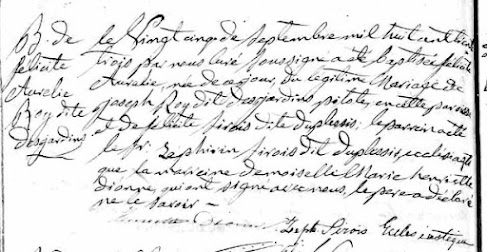 B. de
félicité
Aurélie
Roy dite
Desjardins
Le Vingt cinq de Septembre mil huit cent trente
trois par nous Curé Soussigné a été baptisée félicité
Aurélie, née de ce jour, du légitime Mariage de
Joseph Roy dit Desjardins pilote, en cette paroisse
et de félicité Sirois dite Duplessis; le parrain a été
le Sr. Zéphirin Sirois dit Duplessis, ecclésiastique
que la marraine demoiselle Marie henriette
Dionne, qui ont signé avec nous, le père a déclaré
ne le savoir —
Zeph Sirois Ecclésiastique